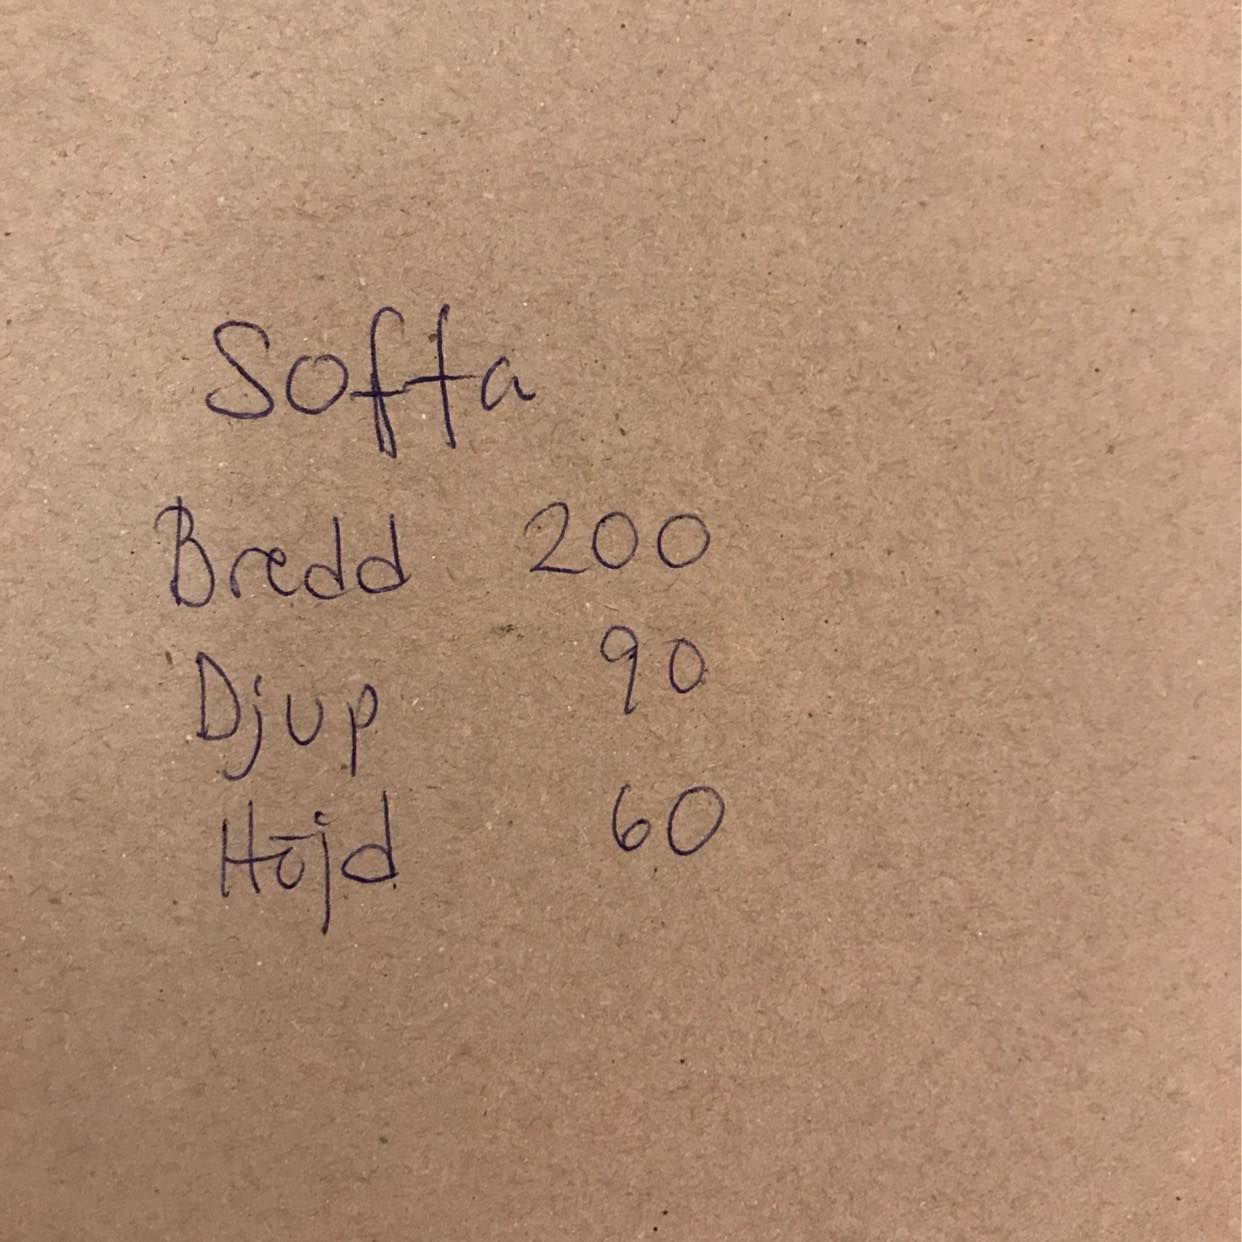 Soffa
Bredd 200
Djup 90
Höjd 60